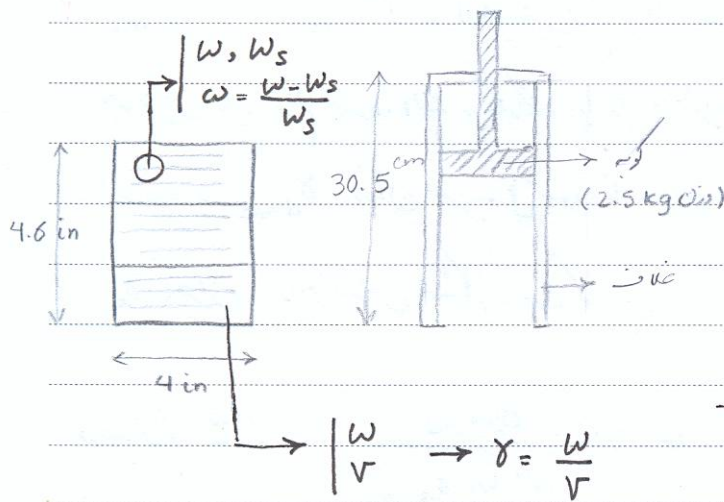 W, Ws
ω = W - Ws / Ws
4.6 in
4 in
30.5 cm
(وزن 2.5 kg)
غلاف
W
V → γ = W / V